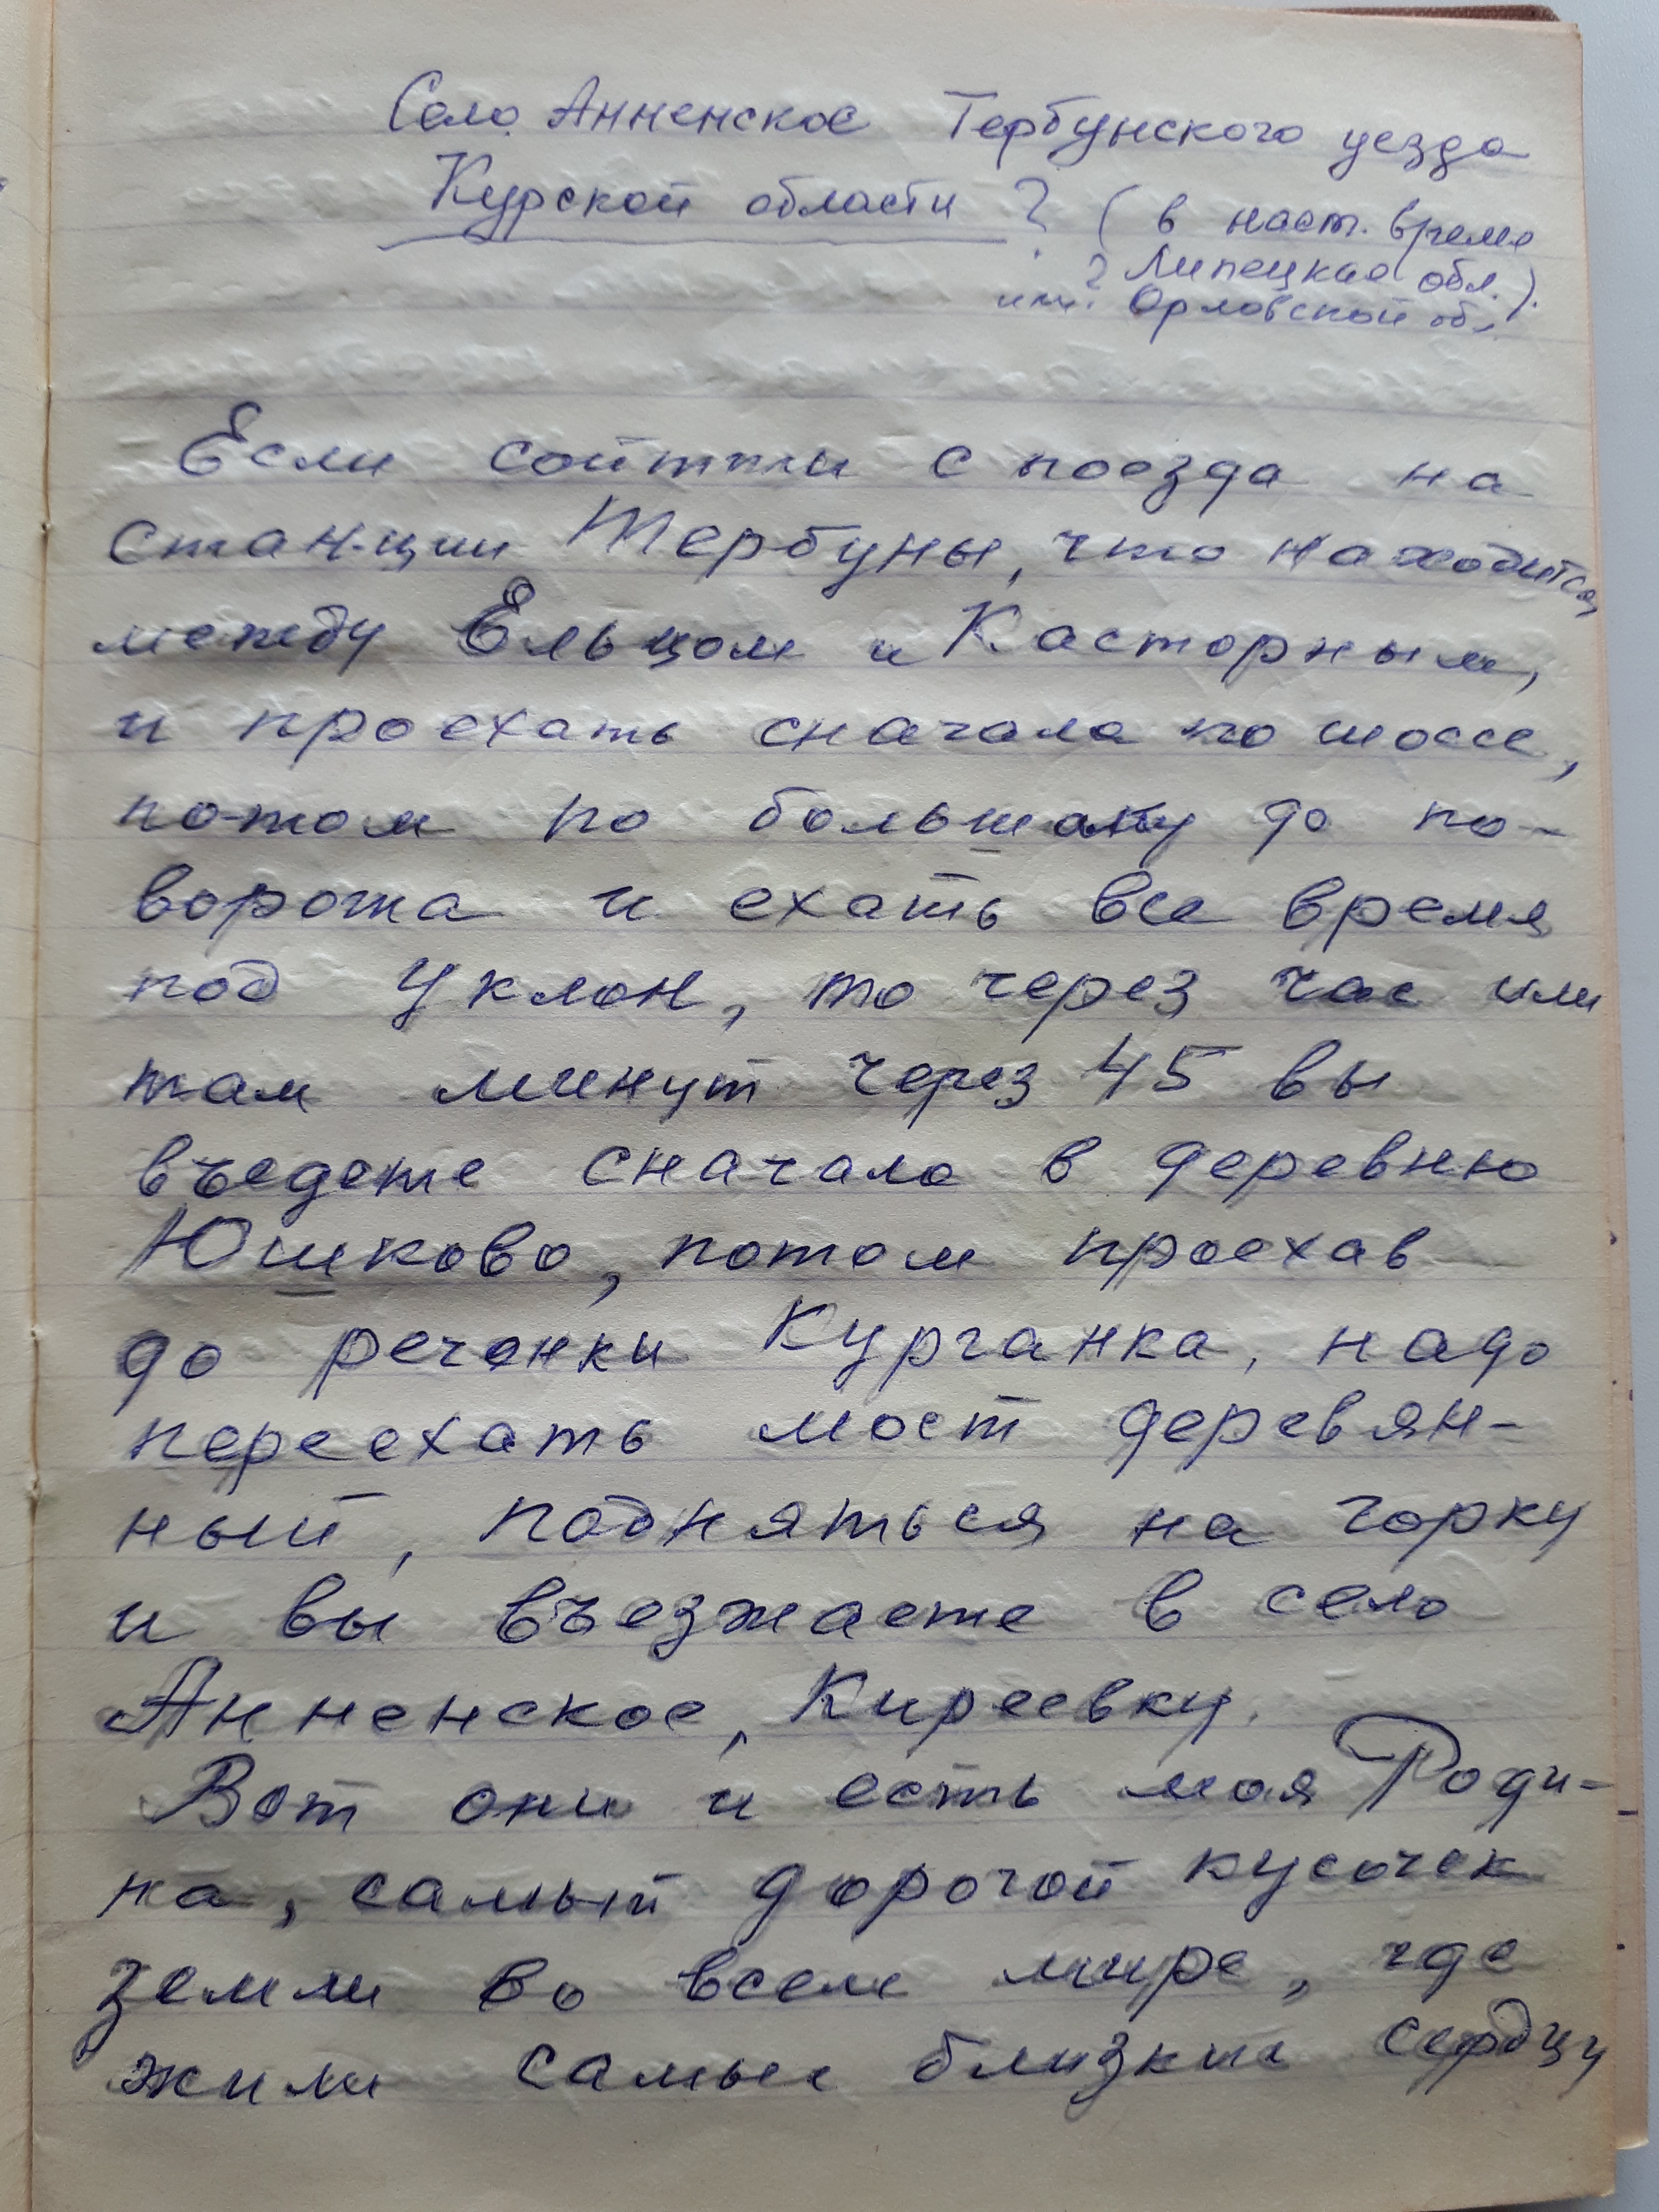 Село Анненское Тербунского уезда
Курской области ? (в наст. время
? Липецкая обл.).
или Орловской об.
Если сойтти с поезда на
станции Тербуны, что находится
между Ельцом и Касторным,
и проехать сначала по шоссе,
потом по большаку до по-
ворота и ехать все время
под уклон, то через час или
там минут через 45 вы
въедете сначала в деревню
Юшково, потом проехав
до речонки Курганка, надо
переехать мост деревян-
ный, подняться на горку
и вы въезжаете в село
Анненское, Киреевку.
Вот они и есть моя Роди-
на, самый дорогой кусочек
земли во всем мире, где
жили самые близкие сердцу